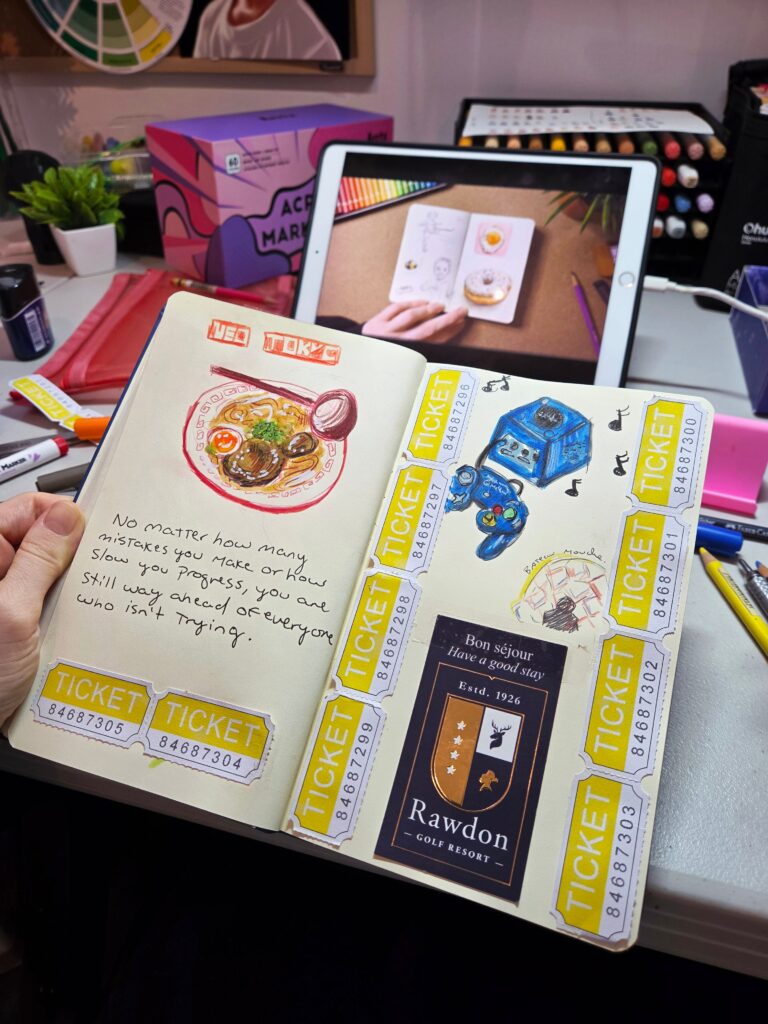 60
ACR
MARK
Ohu
NEO TOKYO
No matter how many
mistakes you make or how
slow you Progress, you are
still way ahead of everyone
who isn't Trying.
TICKET
84687305
TICKET
84687304
TICKET
84687296
TICKET
84687297
TICKET
84687298
TICKET
84687299
Bon séjour
Have a good stay
Estd. 1926
Rawdon
— GOLF RESORT —
TICKET
84687300
TICKET
84687301
TICKET
84687302
TICKET
84687303
MARKER